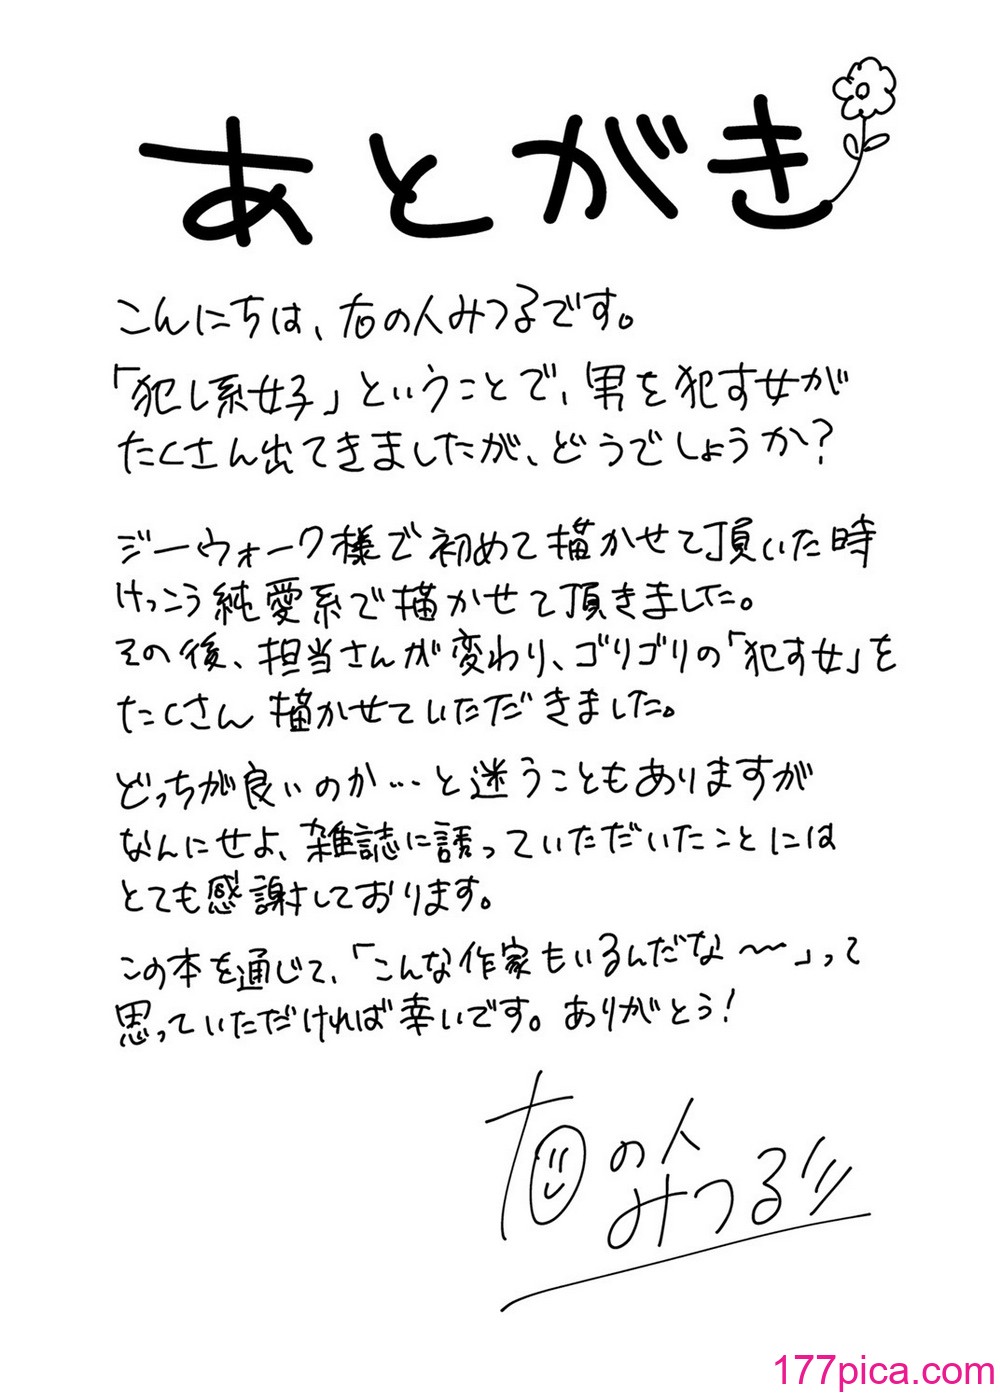 あとがき
こんにちは、右の人みつるです。
「犯し系女子」ということで、男を犯す女が
たくさん出てきましたが、どうでしょうか?
ジーウォーク様で初めて描かせて頂いた時
けっこう純愛系で描かせて頂きました。
その後、担当さんが変わり、ゴリゴリの「犯す女」を
たくさん描かせていただきました。
どっちが良いのか…と迷うこともありますが
なんにせよ、雑誌に誘っていただいたことには
とても感謝しております。
この本を通じて、「こんな作家もいるんだな〜〜」って
思っていただければ幸いです。ありがとう!
右の人
みつる
177pica.com